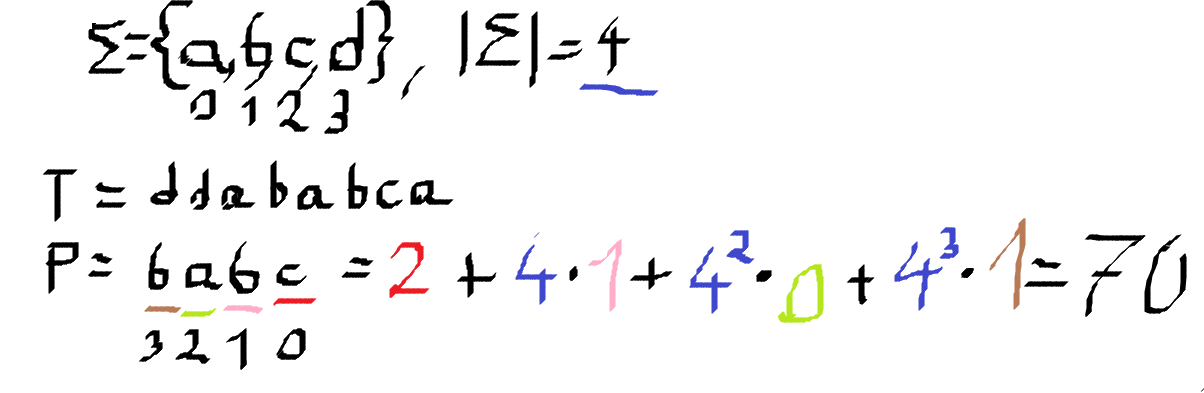 Σ={a,b,c,d}, |Σ|=4
0 1 2 3
T = ddababca
P= babc = 2 + 4·1 + 4²·0 + 4³·1 = 70
3 2 1 0